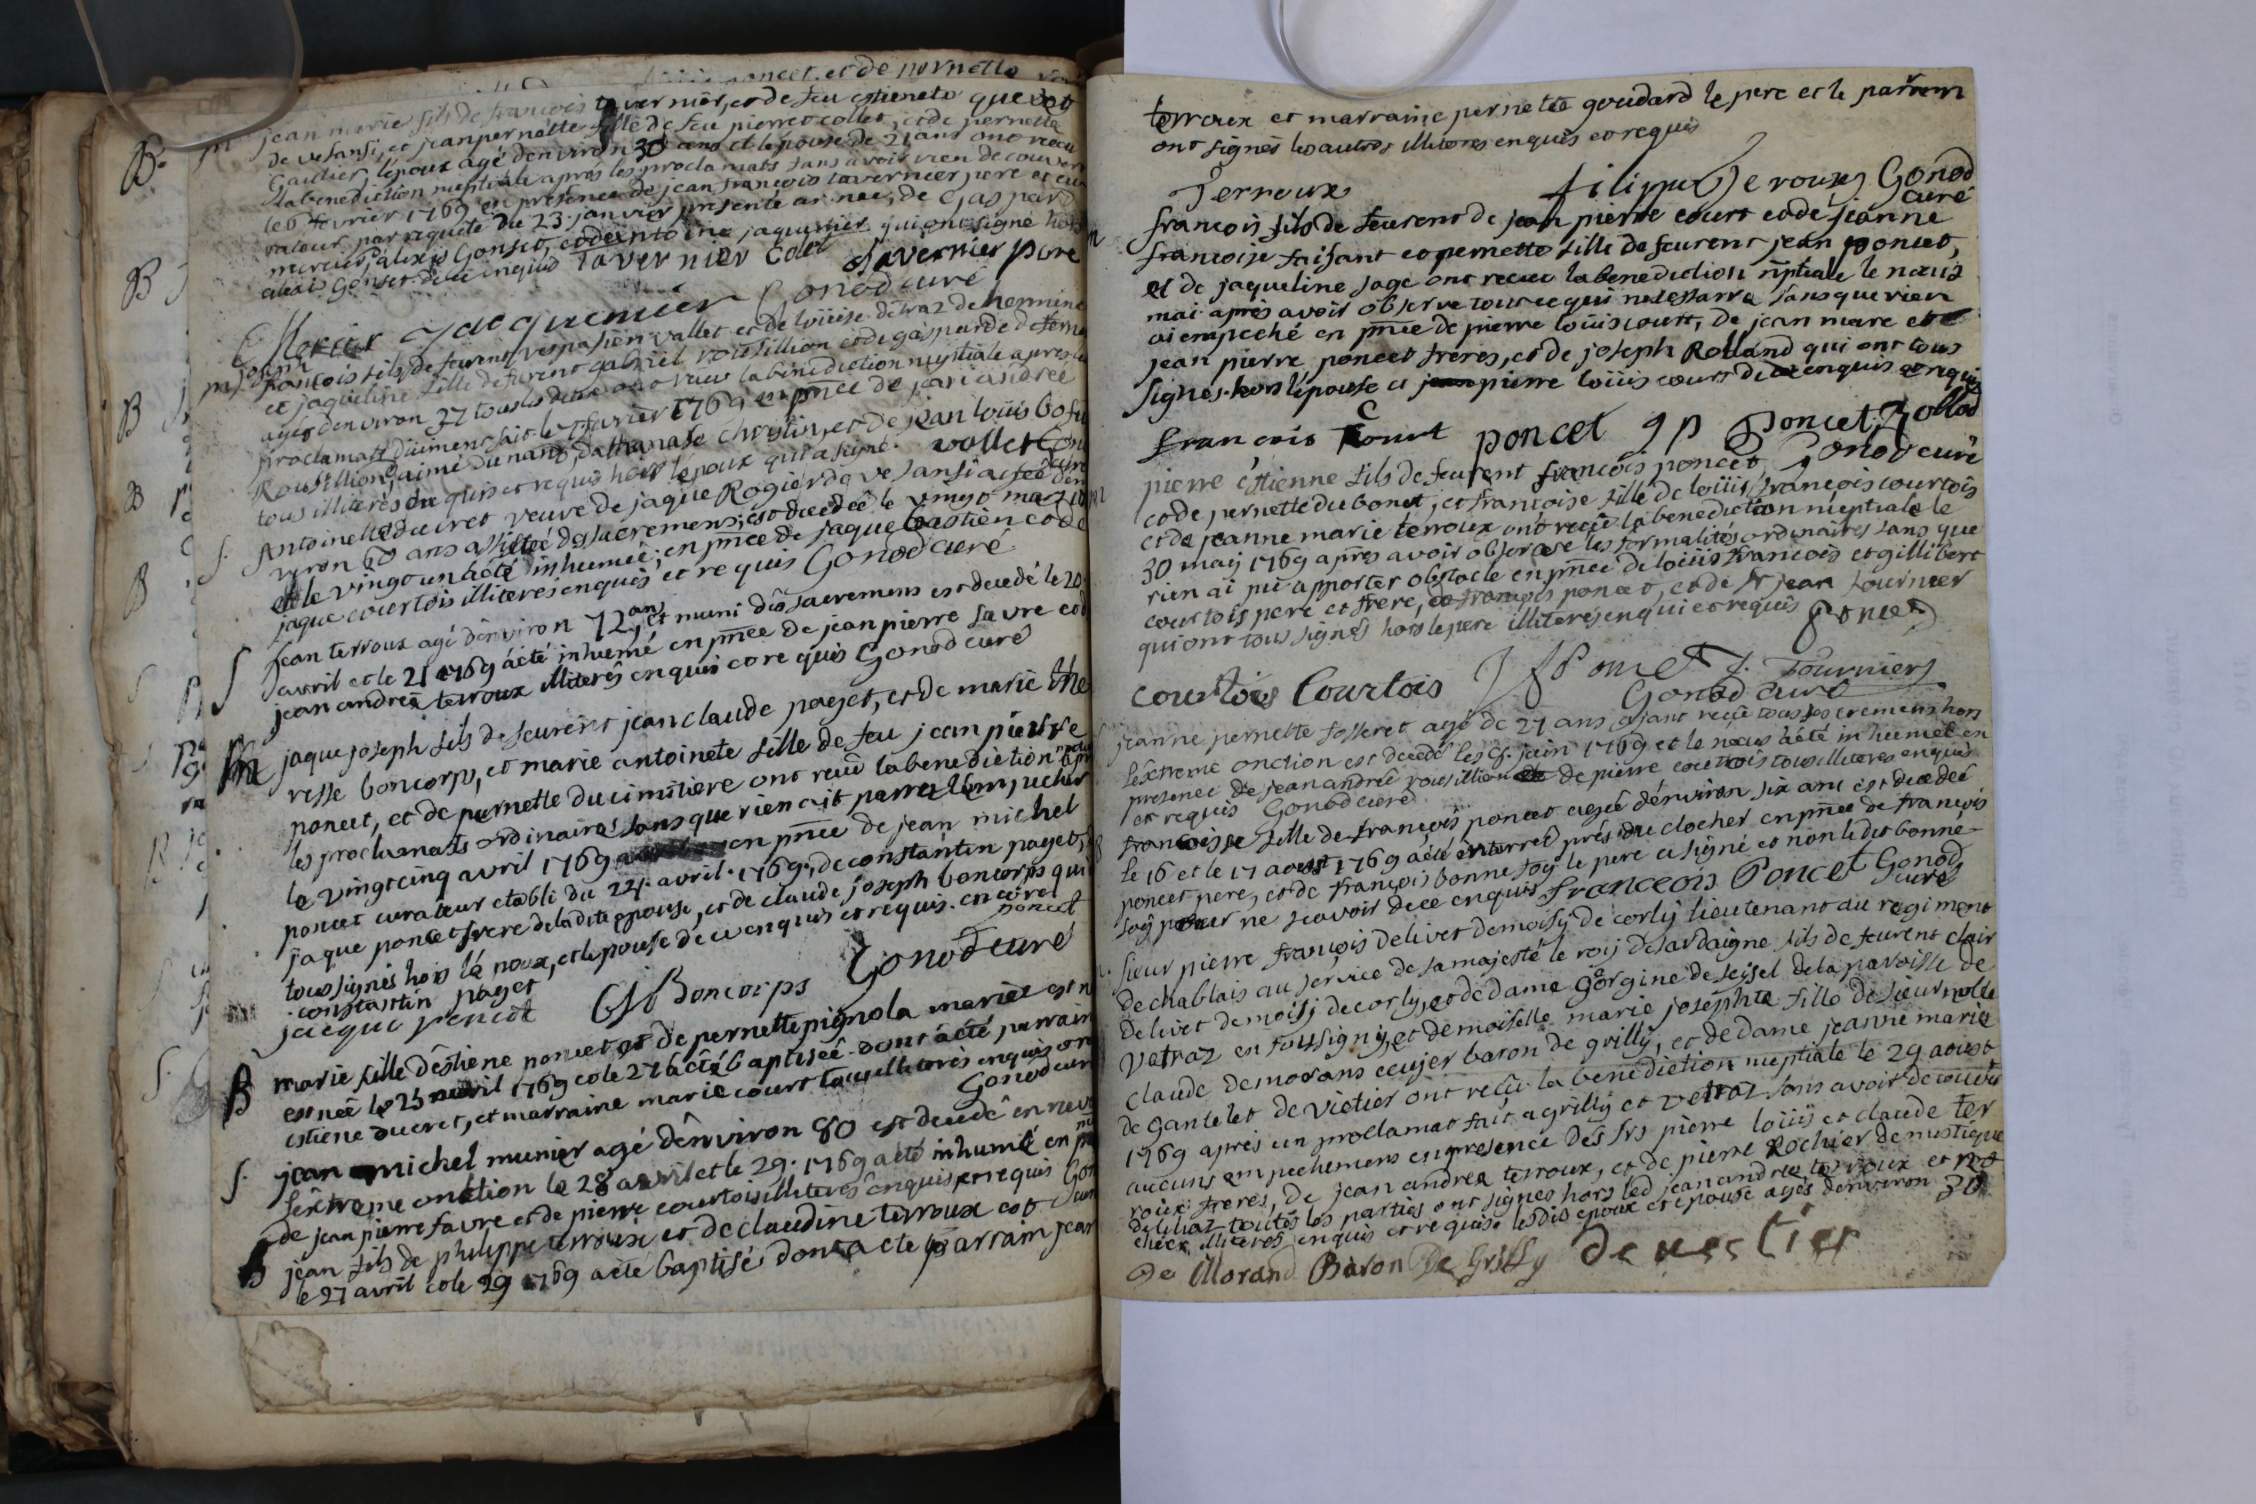 jean marie fils de francois tavernier, et de feu estienete quevet
de vesansi, et jeanpernette fille de feu pierre collet, et de pernette
Gautier, l'epoux agé d'environ 30 ans et l'epouse de 21 ans ont recu
la benediction nuptiale apres les proclamats sans avoir rien decouvert
le 6 fevrier 1769 en presence de jean françois tavernier pere et cu
rateur par requete du 23 janvier presente année, de Gaspard
mercier, alexis Gonset, et de antoine jaquemier qui ont signé hors
alexis Gonset de ce enquis Tavernier Colet Tavernier pere
Mercier Jacquemier Gonod curé
m jean francois fils de feurent vespasien vallet et de loüise detraz de hermine
et jaqueline fille de feurent gabriel rousillion et de gasparde deferne
agés denviron 37 tous les deux ont recus la benediction nuptiale apres les
proclamats düiment fait le 7 fevrier 1769 en pnce de jean andree
Rousillion, d'aimé dunand, dathanase christin, et de jean loüis bosu
tous illiteres enquis et requis hors lepoux qui a signé. vallet Gonod curé
S. Antoinette ducret veuve de jaque Rogier de vesansi agée den
viron 60 ans assistée des sacremens, est decedée le vingt mars
et le vingt un a été inhumée, en pnce de jaque bastien et de
jaque courtois illiteres enquis et requis Gonod curé
S jean terroux agé denviron 72 ans et muni des sacremens est decedé le 20
avril et le 21 1769 a été inhumé en pnce de jean pierre favre et de
jean andrea terroux illiterés enquis et requis Gonod curé
M jaque joseph fils de feurent jean claude paget, et de marie the
resse boncorps, et marie antoinete fille de feu jean pierre
poncet, et de pernette ducimitiere ont reçu la benediction nuptiale apres
les proclamats ordinaires sans que rien ait parru l'empecher
le vingt cinq avril 1769 en pnce de jean michel
poncet curateur etabli du 24 avril 1769, de constantin paget,
jaque poncet frere de la dite epouse, et de claude joseph boncorps qui
tous signés hors lé poux, et lepouse de ce enquis et requis. en cirel
constantin paget poncet
jacque poncet CJ Boncorps Gonod curé
B marie fille d'estiene poncet et de pernette pignola mariés est n
est née le 25 avril 1769 et le 27 a été baptisée dont a été parrain
estiene ducret, et marraine marie court tous illiteres enquis et re
Gonod curé
S. jean michel munier agé d'environ 80 est decedé en recu
l'extreme onction le 28 avril et le 29 1769 a été inhumé en pnce
de jean pierre favre et de pierre courtois illiteres enquis et requis Gonod
curé
B jean fils de philippe terroux et de claudine terroux est
le 27 avril et le 29 1769 a été baptisé dont a été parrain jean
terroux et marraine pernette goudard le pere et le parrain
ont signés les autres illiteres enquis et requis
Terroux filippe Terroux Gonod
curé
francois fils de feurent de jean pierre court et de jeanne
francoise faisant et pernette fille de feurent jean poncet,
et de jaqueline sage ont recue la benediction nptiale le neuf
mai après avoir observe tout ce qui nécessaire sans que rien
ai empeché en pnce de pierre loüis court, de jean marc et
jean pierre poncet freres, et de joseph Rolland qui ont tous
signés hors lépouse et pierre loüis court de ce enquis et requis
francois Court poncet J P Poncet Rollad
Gonod curé
pierre éstienne fils de feurent françois poncet
et de pernette du bonet, et francoise fille de loüis françois courtois
et de jeanne marie terroux ont reçu la benediction nuptiale le
30 maij 1769 après avoir observe les formalités ordinaires sans que
rien ai pu apporter obstacle en pnce de loüis francois et gillibert
courtois pere et frere, de françois poncet, et de sr jean fournier
qui ont tous signés hors le pere illiterés enqui et requis Poncet
courtois Courtois JfPoncet J. Fournier
Gonod curé
jeanne pernette fosseret agé de 27 ans ajant reçue tous sacremens hors
l'extreme onction est decedé les 8 juin 1769 et le neuf a été inhumée en
presence de jean andrée rousillion de pierre courtois tous illiteres enquis
et requis Gonod curé
francoisse fille de françois poncet agée d'environ six ans est decedeé
le 16 et le 17 aoust 1769 a été enterreé prés du clocher en pnce de françois
poncet pere, et de françois bonne foy le pere a signé et non le dit bonne
foÿ pour ne scavoir de ce enquis franceois Poncet Gonod
curé
sieur pierre françois delivet demoisy de corly lieutenant au regiment
de chablais au service de sa majesté le roij de sardaigne fils de feurent clair
delivet demoisj de corly, et de dame géorgine de seijsel de la paroisse de
vetraz en foussigny, et demoiselle marie josephte fille de sieur noble
claude demorans ecujer baron de grilly, et de dame jeanne marie
de gantelet de vietier ont reçu la benediction nuptiale le 29 aoust
1769 après un proclamat fait a grilly et vetraz sans avoir decouvert
aucuns empechemens en presence des srs pierre loüis et claude ter
roux freres, de jean andrea terroux, et de pierre Rochier de mustique
toutes les parties ont signés hors led jean andrea terroux et
illiteres enquis et requis lesdis epoux et epouse agés denviron 30
De Morand Baron De Grilly de vestier